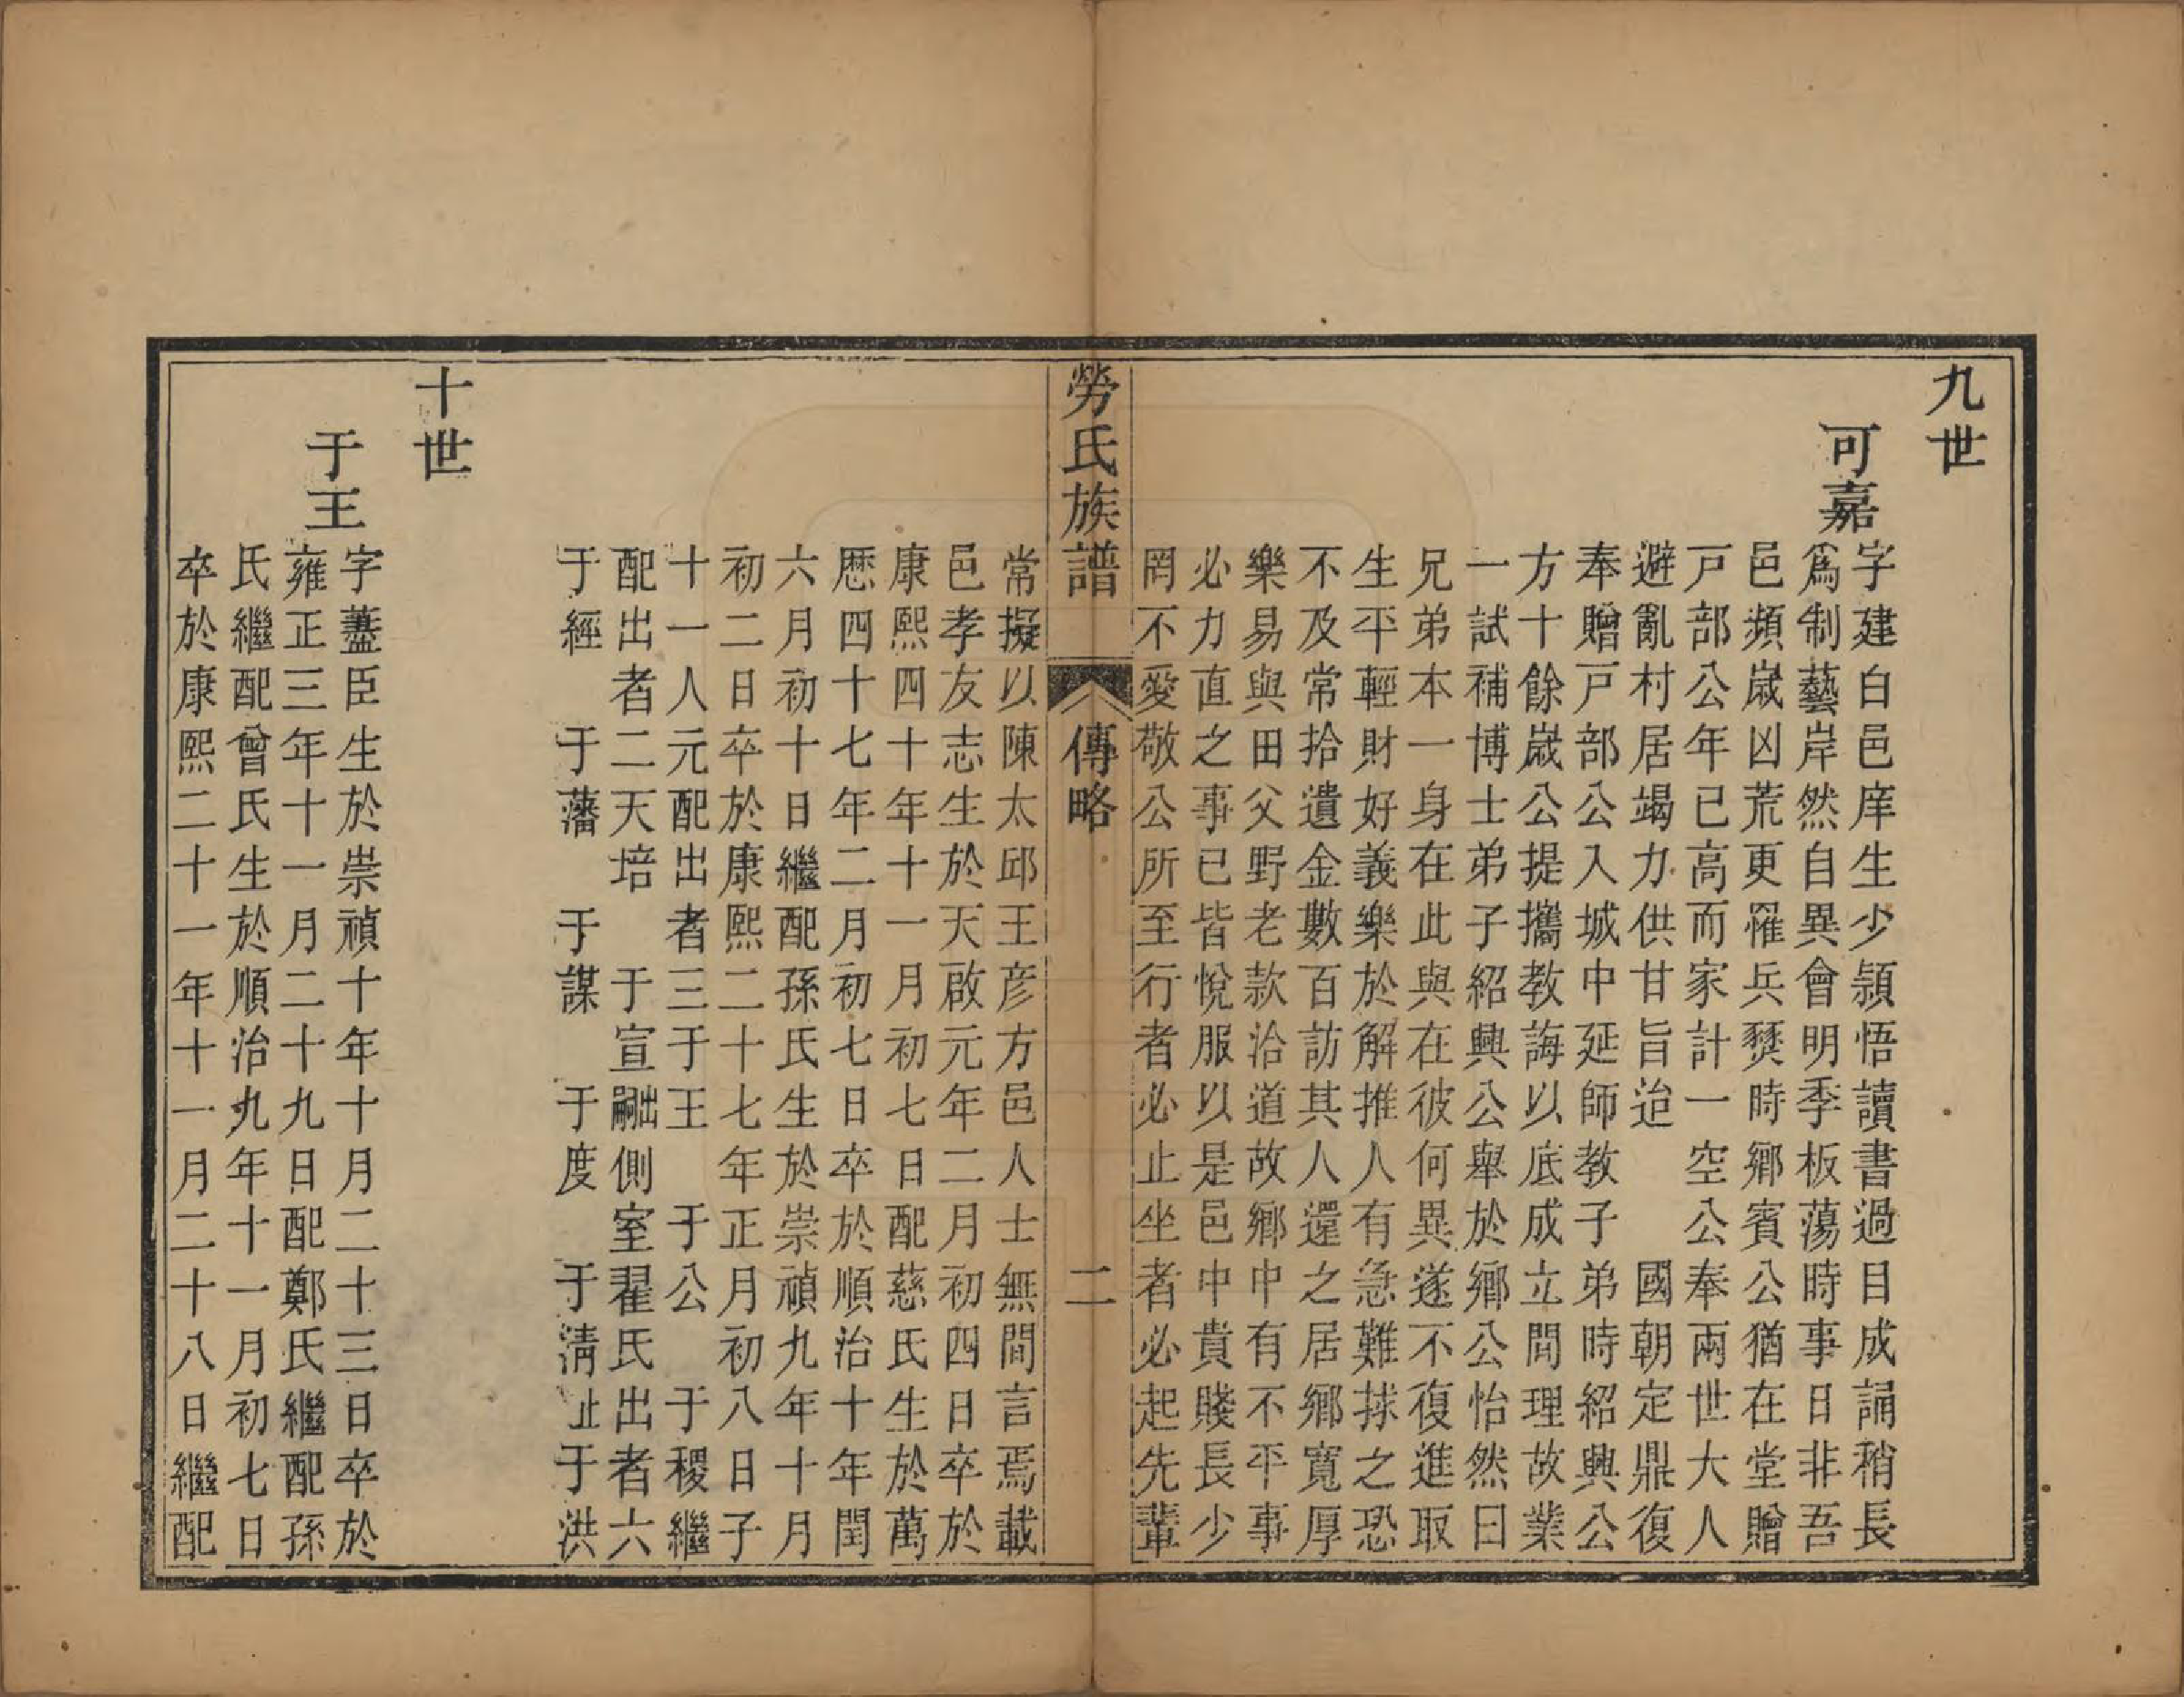 九世
可嘉
字建白邑庠生少穎悟讀書過目成誦稍長
爲制藝岸然自異會明季板蕩時事日非吾
邑頻嵗凶荒更罹兵燹時鄉賓公猶在堂贈
戸部公年已高而家計一空公奉兩世大人
避亂村居竭力供甘旨迨　國朝定鼎復
奉贈戸部公入城中延師教子弟時紹興公
方十餘嵗公提攜教誨以底成立閒理故業
一試補博士弟子紹興公舉於鄉公怡然曰
兄弟本一身在此與在彼何異遂不復進取
生平輕財好義樂於解推人有急難捄之恐
不及常拾遺金數百訪其人還之居鄉寬厚
樂易與田父野老款洽道故鄉中有不平事
必力直之事已皆悅服以是邑中貴賤長少
罔不愛敬公所至行者必止坐者必起先輩
勞氏族譜　傳略　二
常擬以陳太邱王彦方邑人士無間言焉載
邑孝友志生於天啟元年二月初四日卒於
康熙四十年十一月初七日配慈氏生於萬
歴四十七年二月初七日卒於順治十年閏
六月初十日繼配孫氏生於崇禎九年十月
初二日卒於康熙二十七年正月初八日子
十一人元配出者三于王　于公　于稷繼
配出者二天培　于宣嗣出側室翟氏出者六
于經　于藩　于謀　于度　于淸　于洪
十世
于王
字藎臣生於崇禎十年十月二十三日卒於
雍正三年十一月二十九日配鄭氏繼配孫
氏繼配曾氏生於順治九年十一月初七日
卒於康熙二十一年十一月二十八日繼配